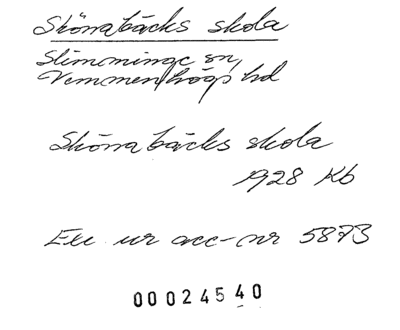 Skönabäcks skola
Slimminge sn,
Vemmenhögs hd
Skönabäcks skola
1928 Kb
Exc ur acc-nr 5873
00024540